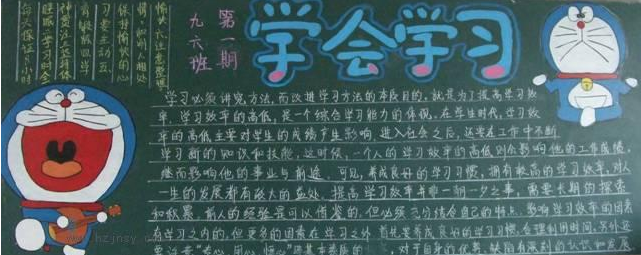 学会学习
第一期
九六班
学习必须讲究方法,而改进学习方法的本质目的,就是为了提高学习效
率,学习效率的高低,是一个综合学习能力的体现。在学生时代,学习效
率的高低主要对学生的成绩产生影响。进入社会之后,还要在工作中不断
学习新的知识和技能,这时候,一个人的学习效率的高低则会影响他的工作成绩,
继而影响他的事业与前途。可见,养成良好的学习习惯,拥有较高的学习效率,对人
一生的发展都有极大的益处。提高学习效率并非一朝一夕之事,需要长期的探索
和积累。前人的经验是可以借鉴的,但必须充分结合自己的特点。影响学习效率的因素
有学习之内的,但更多的因素在学习之外。首先要养成良好的学习习惯,合理利用时间,另外还
要注意"专心、用心、恒心"等基本素质的,对于自身的优势、缺陷有深刻的认识和发展
hzjnsy.